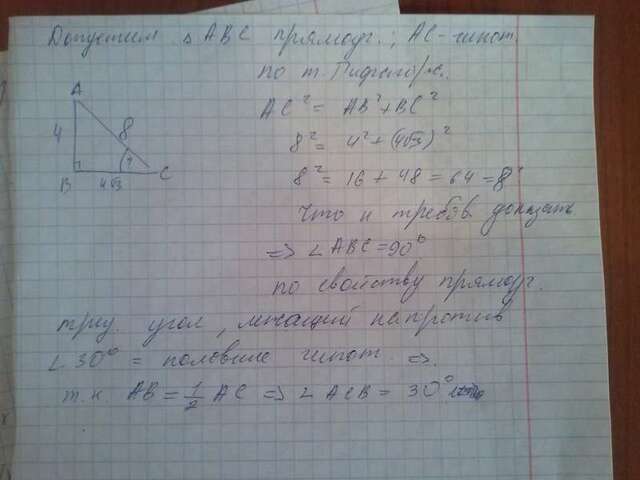 Допустим △ ABC прямоуг.; AC - гипот.
по т. Пифагора.
A
AC² = AB² + BC²
4
8
8² = 4² + (4√3)²
?
B
4√3
C
8² = 16 + 48 = 64 = 8²
Что и требов. доказать
=> ∠ ABC = 90°
по свойству прямоуг.
треу. угол, лежащий напротив
∠ 30° = половине гипот. =>.
т.к AB = 1/2 AC => ∠ ACB = 30°